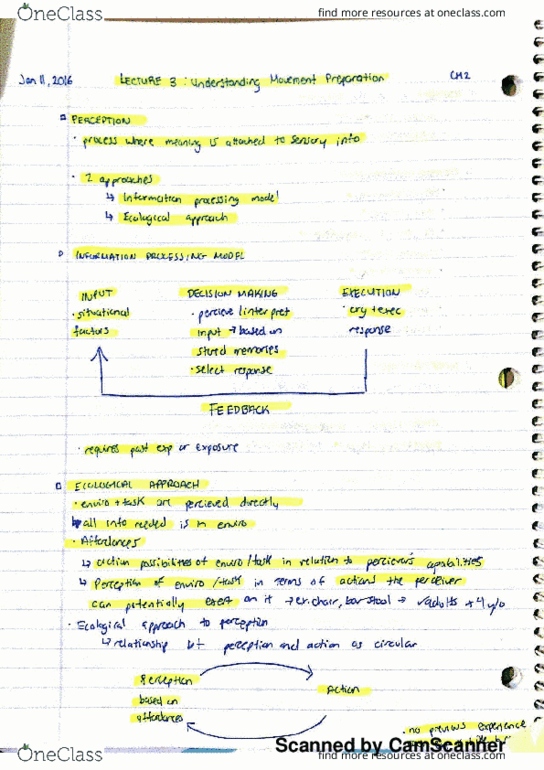 OneClass
find more resources at oneclass.com
Jan 11, 2016 LECTURE 3: Understanding Movement Preparation CH2
PERCEPTION
· process where meaning is attached to sensory info
· 2 approaches
↳ Information processing model
↳ Ecological approach
INFORMATION PROCESSING MODEL
INPUT DECISION MAKING EXECUTION
· situational · percieve/interpret · org + exec
factors input → based on response
stored memories
· select response
FEEDBACK
· requires past exp or exposure
ECOLOGICAL APPROACH
· enviro + task are percieved directly
↳ all info needed is in enviro
· Affordances
↳ action possibilities of enviro/task in relation to perciever's capabilities
↳ Perception of enviro/task in terms of actions the perciever
can potentially exert on it → chair, bar stool → adults + 4 y/o
· Ecological approach to perception
↳ relationship b/t perception and action as circular
Perception
Action
based on
affordances
· no previous experience
Scanned by CamScanner
OneClass
find more resources at oneclass.com